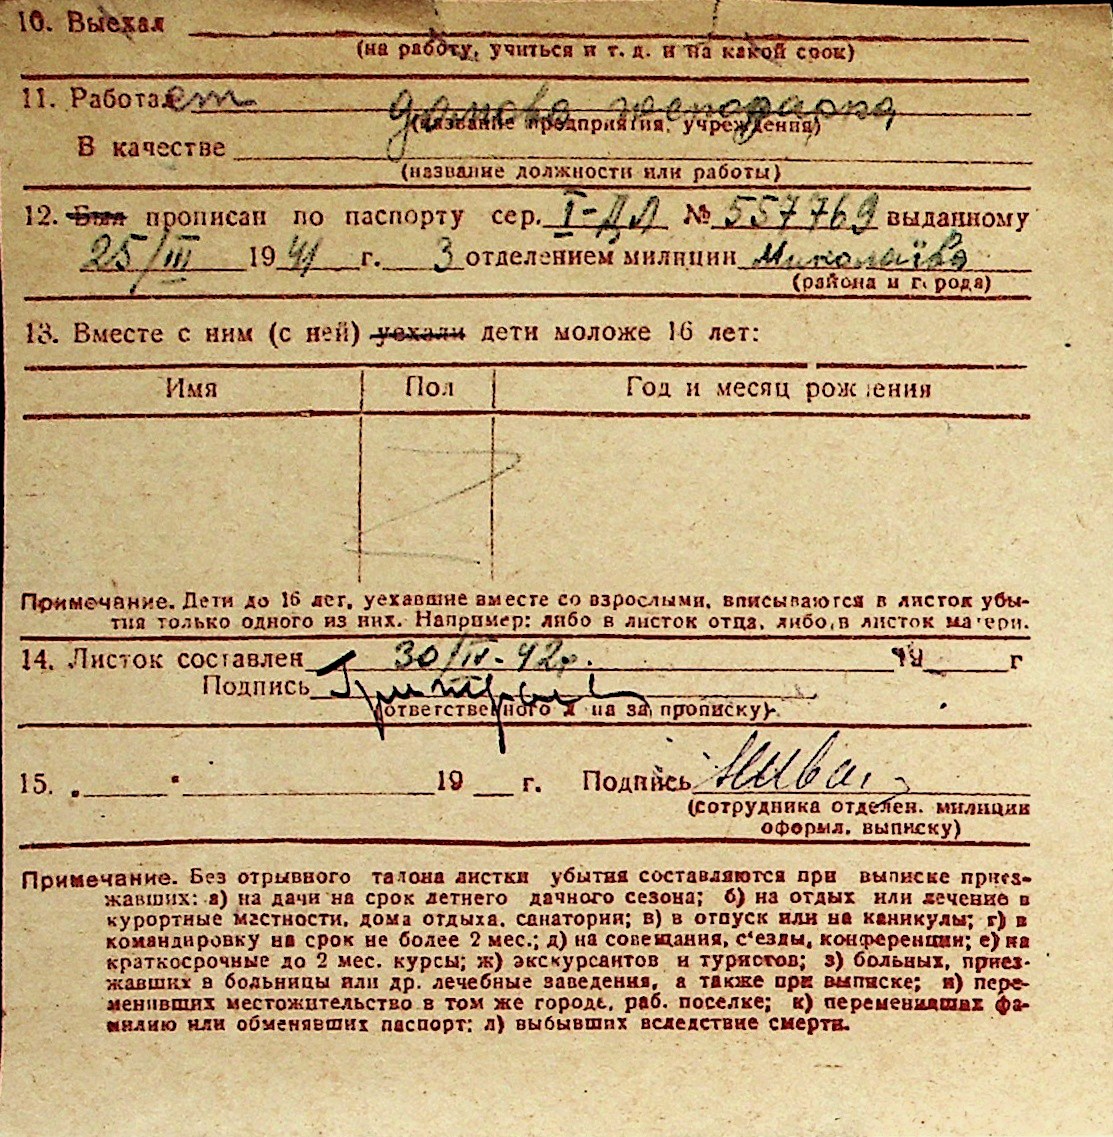 10. Выехал
(на работу, учиться и т. д. и на какой срок)
11. Работает домова господарка
(название предприятия, учреждения)
В качестве
(название должности или работы)
12. Был прописан по паспорту сер. I-ДЛ № 557769 выданному
25/III 1941 г. 3 отделением милиции Миколаїва
(района и города)
13. Вместе с ним (с ней) уехали дети моложе 16 лет:
Имя Пол Год и месяц рождения
Z
Примечание. Дети до 16 лет, уехавшие вместе со взрослыми, вписываются в листок убы-
тия только одного из них. Например: либо в листок отца, либо в листок матери.
14. Листок составлен 30/IV-42р. 19 г
Подпись
(ответственного л на за прописку)
15. „ " 19 г. Подпись
(сотрудника отделен. милиции
оформл. выписку)
Примечание. Без отрывного талона листки убытия составляются при выписке приез-
жавших: а) на дачи на срок летнего дачного сезона; б) на отдых или лечение в
курортные местности, дома отдыха, санатории; в) в отпуск или на каникулы; г) в
командировку на срок не более 2 мес.; д) на совещания, с'езды, конференции; е) на
краткосрочные до 2 мес. курсы; ж) экскурсантов и туристов; з) больных, приез-
жавших в больницы или др. лечебные заведения, а также при выписке; и) пере-
менивших местожительство в том же городе, раб. поселке; к) переменивших фа-
милию или обменявших паспорт; л) выбывших вследствие смерти.